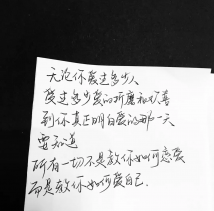 无论你爱过多少人
爱过多少爱的折磨和妒
到你真正明白爱的那一天
要知道
所有一切不是教你如何恋爱
而是教你如何爱自己.